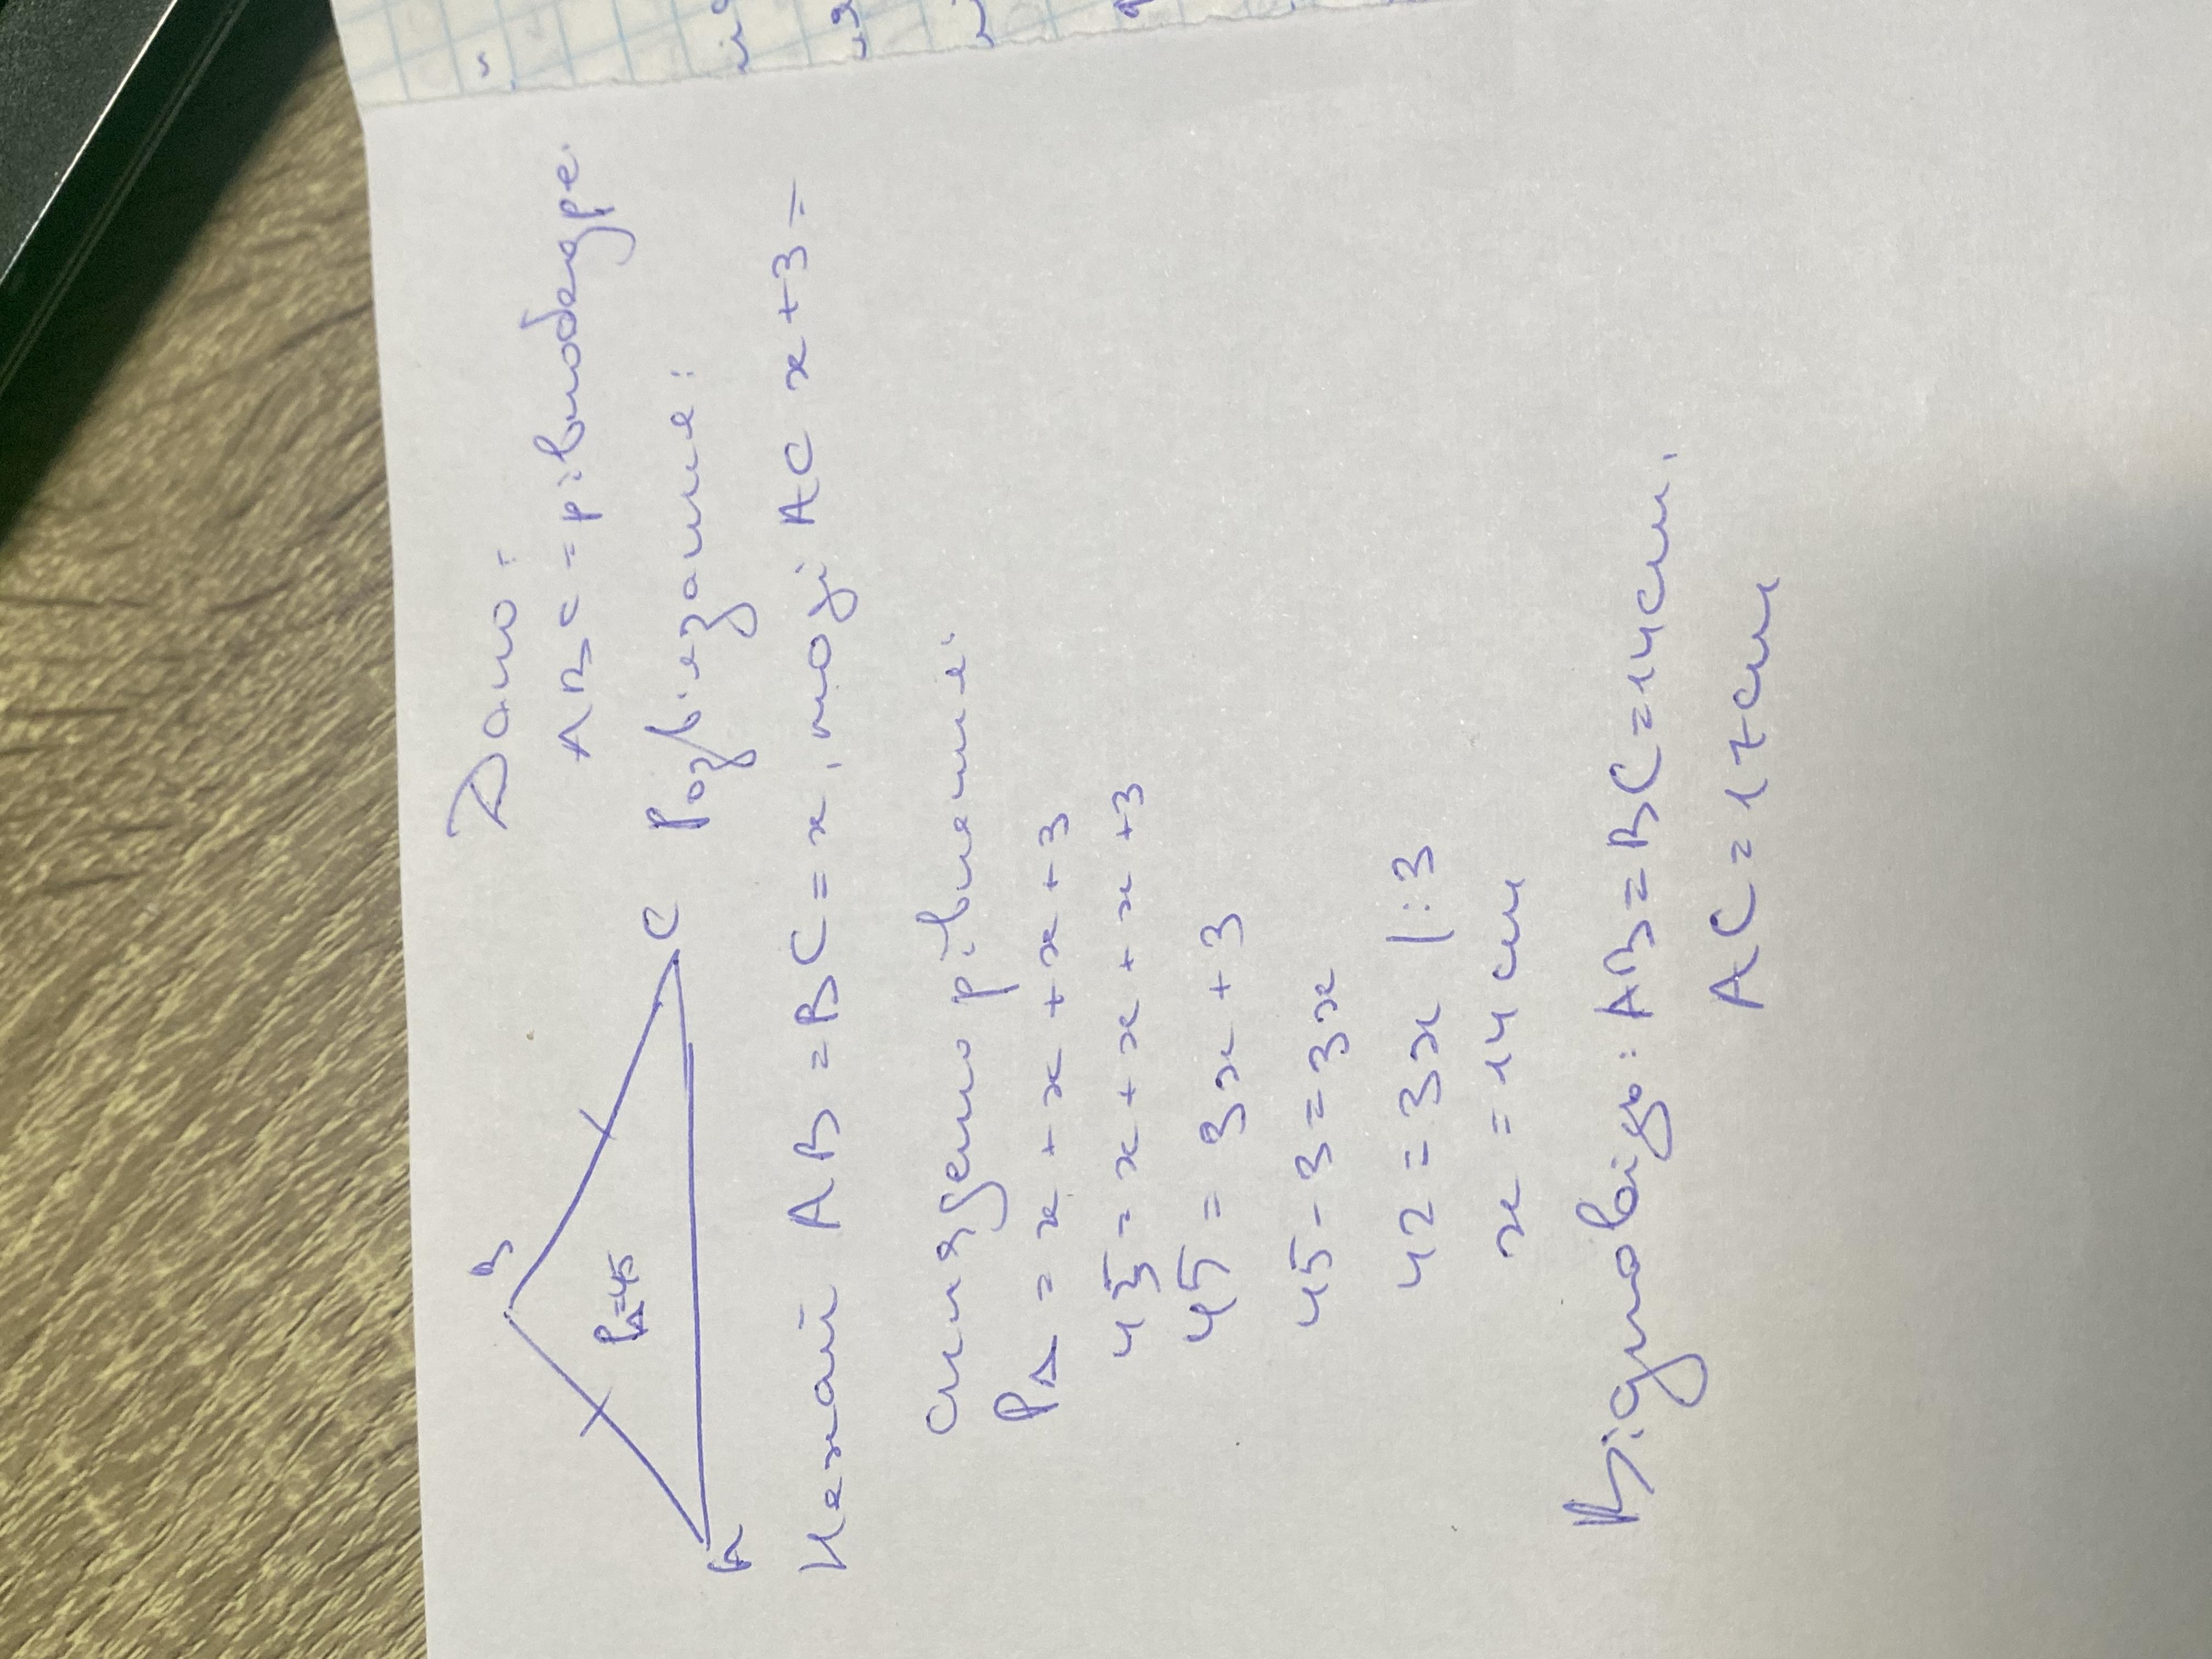 Дано:
ABC - рівнобедре.
B
P△=45
A
C
Розв'язання:
Нехай AB = BC = x, тоді AC x + 3 =
Складемо рівняння.
P△ = x + x + x + 3
45 = x + x + x + 3
45 = 3x + 3
45 - 3 = 3x
42 = 3x |:3
x = 14 см
Відповідь: AB = BC = 14 см.
AC = 17 см